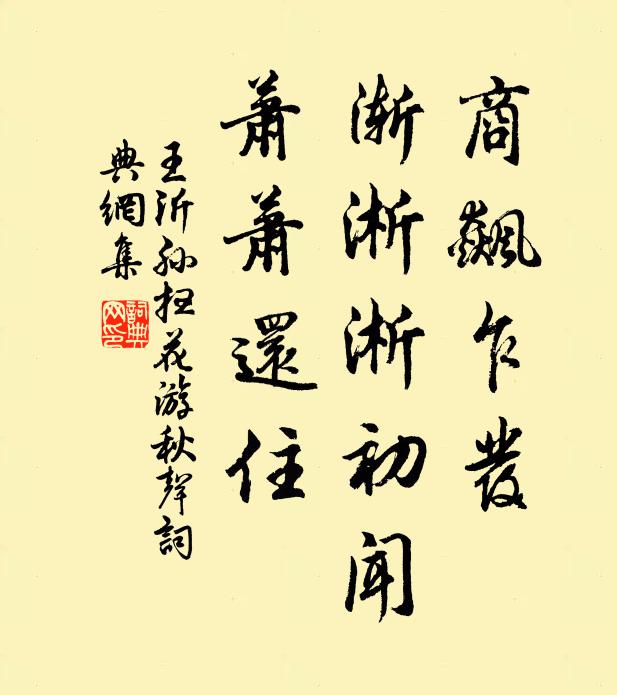 商飆乍發
漸淅淅初聞
蕭蕭還住
王沂孫掃花游秋聲詞
典網集
詞典網印